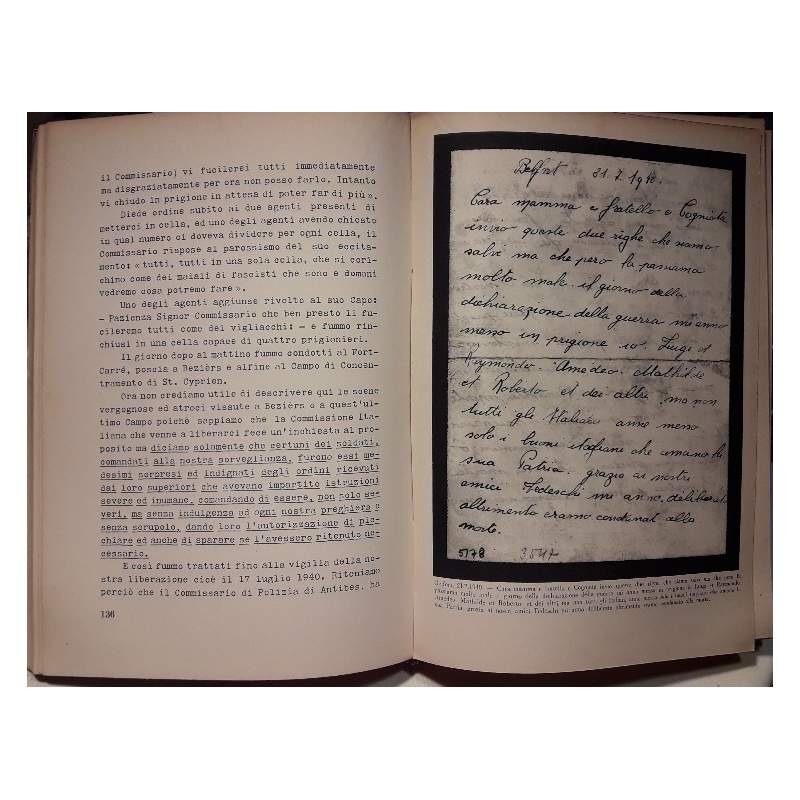 il Commissario) vi fucilerei tutti immediatamente
ma disgraziatamente per ora non posso farlo. Intanto
vi chiudo in prigione in attesa di poter far di più ».
Diede ordine subito ai due agenti presenti di
metterci in cella, ed uno degli agenti avendo chiesto
in qual numero ci doveva dividere per ogni cella, il
Commissario rispose al parossismo del suo eccita-
mento: « tutti, tutti in una sola cella, che si cori-
chino come dei maiali di fascisti che sono e domani
vedremo cosa potremo fare ».
Uno degli agenti aggiunse rivolto al suo Capo:
— Pazienza Signor Commissario che ben presto li fu-
cileremo tutti come dei vigliacchi: — e fummo rin-
chiusi in una cella capace di quattro prigionieri.
Il giorno dopo al mattino fummo condotti al Fort-
Carré, poscia a Bezièrs e alfine al Campo di Concen-
tramento di St. Cyprien.
Ora non crediamo utile di descrivere qui le scene
vergognose ed atroci vissute a Bezièrs o a quest'ul-
timo Campo poichè sappiamo che la Commissione Ita-
liana che venne a liberarci fece un'inchiesta al pro-
posito ma diciamo solamente che certuni dei soldati,
comandati alla nostra sorveglianza, furono essi me-
desimi sorpresi ed indignati degli ordini ricevuti
dai loro superiori che avevano impartito istruzioni
severe ed inumane, comandando di essere, non solo se-
veri, ma senza indulgenza ad ogni nostra preghiera e
senza scrupolo, dando loro l'autorizzazione di pic-
chiare ed anche di sparare se l'avessero ritenuto ne-
cessario.
E così fummo trattati fino alla vigilia della no-
stra liberazione cioè il 17 luglio 1940. Riteniamo
perciò che il Commissario di Polizia di Antibes, ha
136
Belfort 21.7.1940.
Cara mamma e fratello e Cogniata
invio queste due righe che siamo
salvi ma che pero la passiama
molto male. il giorno della
dichiarazione della guerra mi anno
meno in prigione. io. Luigi et
Raymondo. Amedeo. Mathilde
et Roberto et dei altri. ma non
tutti gli Italiani anno meno
solo i buoni italiani che amano la
sua Patria. grazio ai nostri
amici Tedeschi mi anno deliberato
altrimento eramo condanat alla
morte.
5178 3547
Belfort, 21.7.1940. — Cara mamma e fratello e Cogniata invio queste due righe che siamo salvi ma che pero la
passiama molto male. il giorno della dichiarazione della guerra mi anno meno in prigione io Luigi et Raymondo
Amedeo. Mathilde et Roberto et dei altri ma non tutti gli Italiani anno meno solo i buoni italiani che amano la
sua Patria. grazio ai nostri amici Tedeschi mi anno deliberato altrimento eramo condanat alla morte.